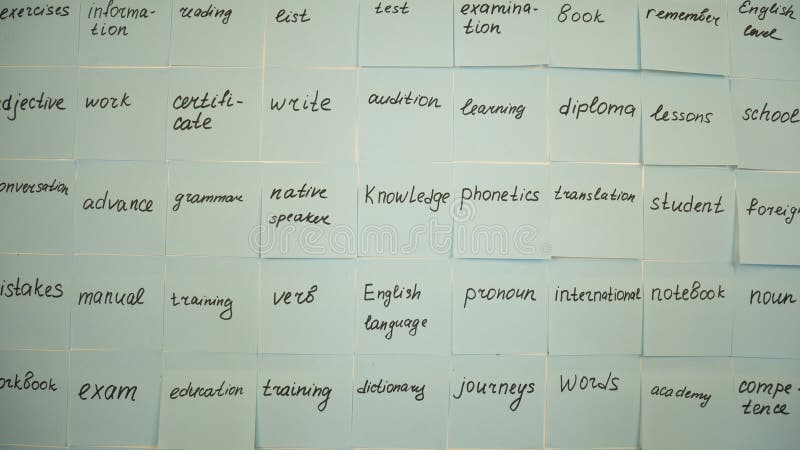 exercises
informa-
tion
reading
list
test
examina-
tion
book
remember
English
level
djective
work
certifi-
cate
write
audition
learning
diploma
lessons
school
onversation
advance
grammare
native
speaker
Knowledge
phonetics
translation
student
foreign
istakes
manual
training
verb
English
language
pronoun
international
notebook
noun
orkbook
exam
education
training
dictionary
journeys
words
academy
compe-
tence
dreamstime